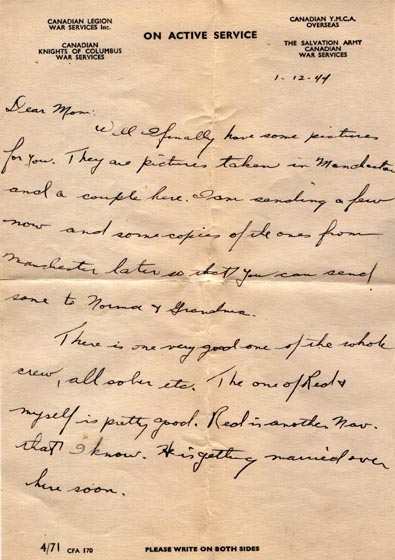 CANADIAN LEGION
WAR SERVICES Inc.
CANADIAN
KNIGHTS OF COLUMBUS
WAR SERVICES
ON ACTIVE SERVICE
CANADIAN Y.M.C.A.
OVERSEAS
THE SALVATION ARMY
CANADIAN
WAR SERVICES
1-12-44
Dear Mom:
Well I finally have some pictures
for you. They are pictures taken in Manchester
and a couple here. I am sending a few
now and some copies of the ones from
Manchester later so that you can send
some to Norma & Grandma.
There is one very good one of the whole
crew, all sober etc. The one of Red &
myself is pretty good. Red is another Nav.
that I know. He is getting married over
here soon.
4/71 CFA 170
PLEASE WRITE ON BOTH SIDES